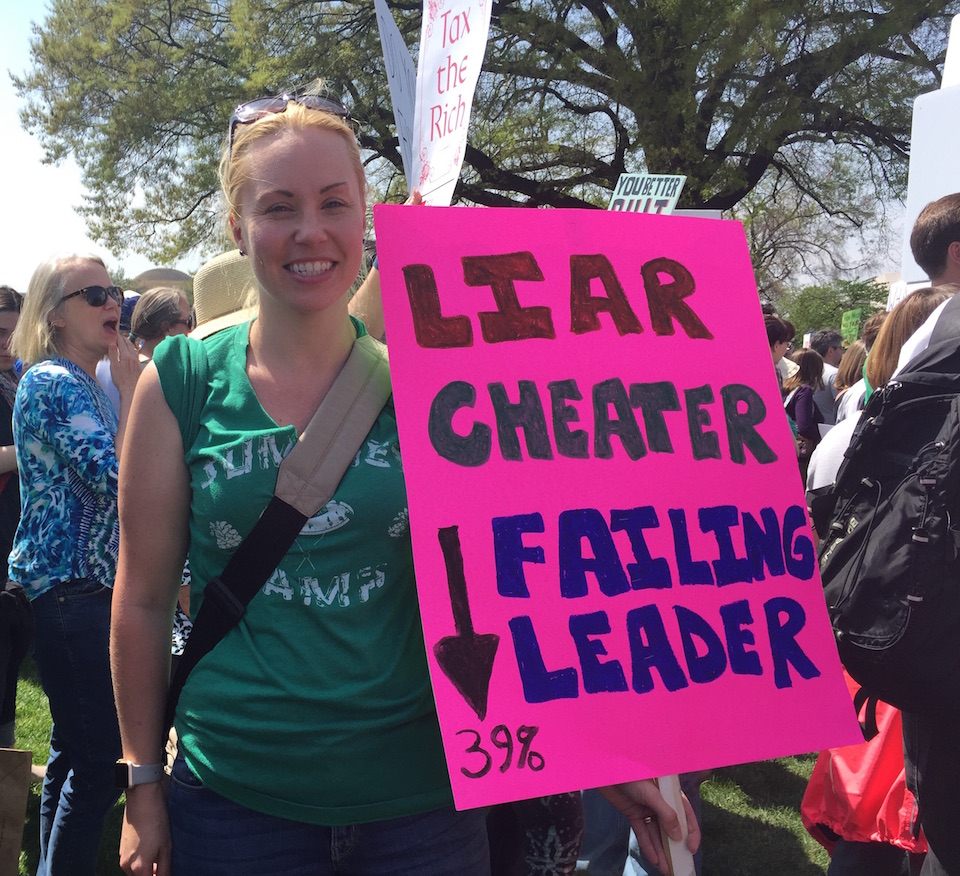 Tax
the
Rich
YOU BETTER
LIAR
CHEATER
FAILING
LEADER
39%